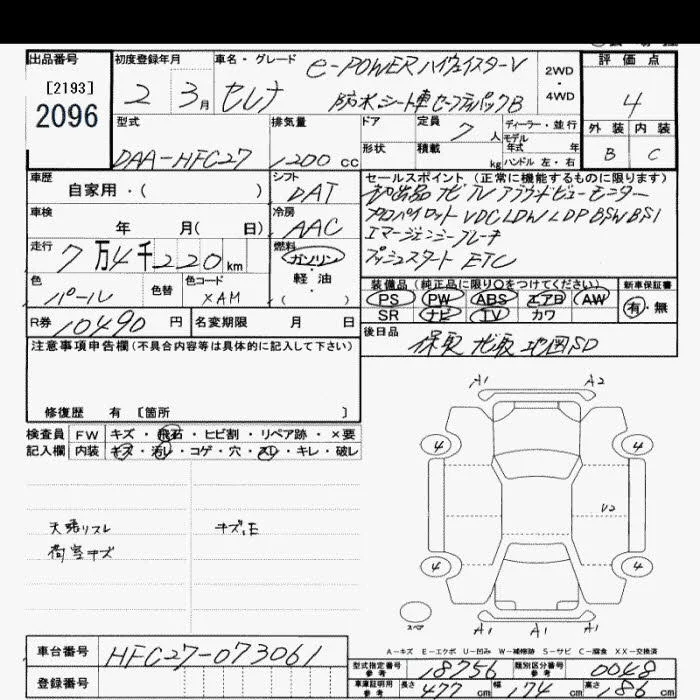 出品番号 初度登録年月 車名・グレード 評価点
[2193]
2096
2 3月 セレナ e-POWER ハイウェイスターV 2WD・4WD 4
防水シート車 セーフティパックB
型式 排気量 ドア 定員 ディーラー・並行 外装 内装
DAA-HFC27 1200 cc 7人 モデル年式 年 B C
形状 積載 kg ハンドル 左・右
車歴 シフト セールスポイント (正常に機能するものに限ります)
自家用・( ) DAT 初出品 ナビ TV アラウンドビューモニター
車検 冷房 プロパイロット VDC LDW LDP BSW BSI
年 月( 日) AAC エマージェンシーブレーキ
走行 燃料 プッシュスタート ETC
7万4千220km ガソリン・軽油・( )
色 色替 色コード 装備品 (純正品に限り○をつけてください) 新車保証書
パール XAM PS PW ABS エアB AW 有・無
SR ナビ TV カワ
R券 10490円 名変期限 月 日 後日品
保取 ナビ取 地図SD
注意事項申告欄 (不具合内容等は具体的に記入して下さい)
修復歴 有 [箇所 ]
検査員 FW キズ・飛石・ヒビ割・リペア跡・×要
記入欄 内装 キズ・汚レ・コゲ・穴・スレ・キレ・破レ
A1 A2
4 4
天張リスレ キズ、E V2
荷室キズ
4 4
スペア A1 A1 A1
A-キズ E-エクボ U-凹み W-補修跡 S-サビ C-腐食 XX-交換済
車台番号 HFC27-073061
型式指定番号 参考 18756 類別区分番号 参考 0048
登録番号 車庫証明用 参考 長さ 477cm 幅 174cm 高さ 186cm